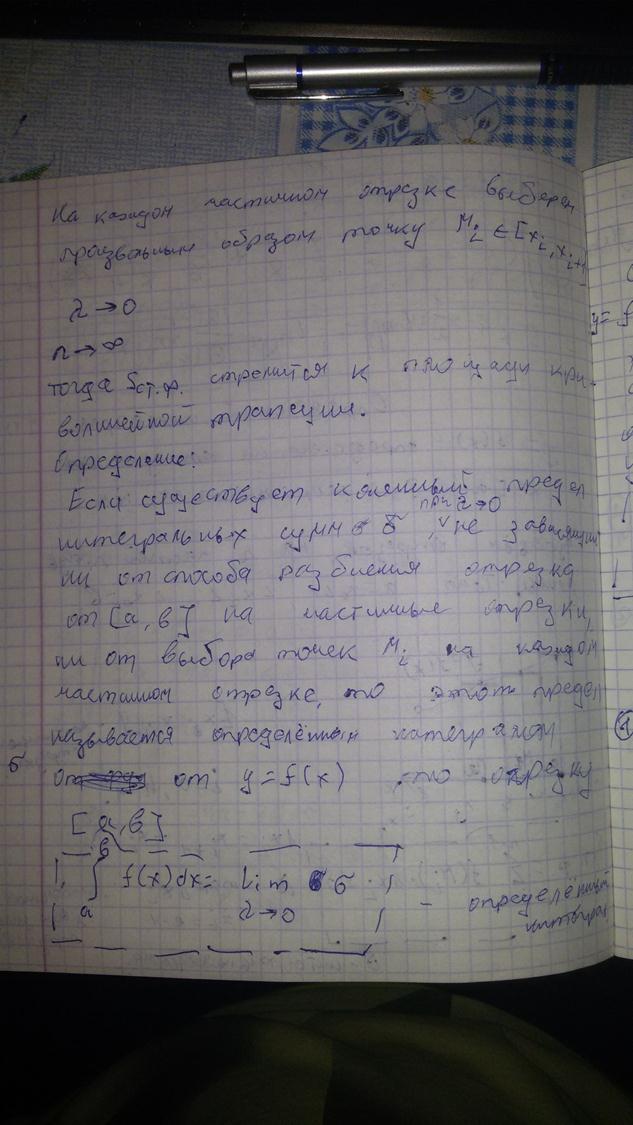 На каждом частичном отрезке выберем
произвольным образом точку Mi ∈ [xi, xi+1]
λ → 0
n → ∞
тогда Sст.ф. стремится к площади кри-
волинейной трапеции.
Определение:
Если существует конечный предел
при λ→0
интегральных сумм σ, не зависящий
ни от способа разбиения отрезка
от [a, в] на частичные отрезки,
ни от выбора точек Mi на каждом
частичном отрезке, то этот предел
называется определённым интегралом
от y = f(x) по отрезку
σ
[a, в]
∫ₐᵇ f(x)dx = lim σ
λ→0
- определённый
интеграл
y= f